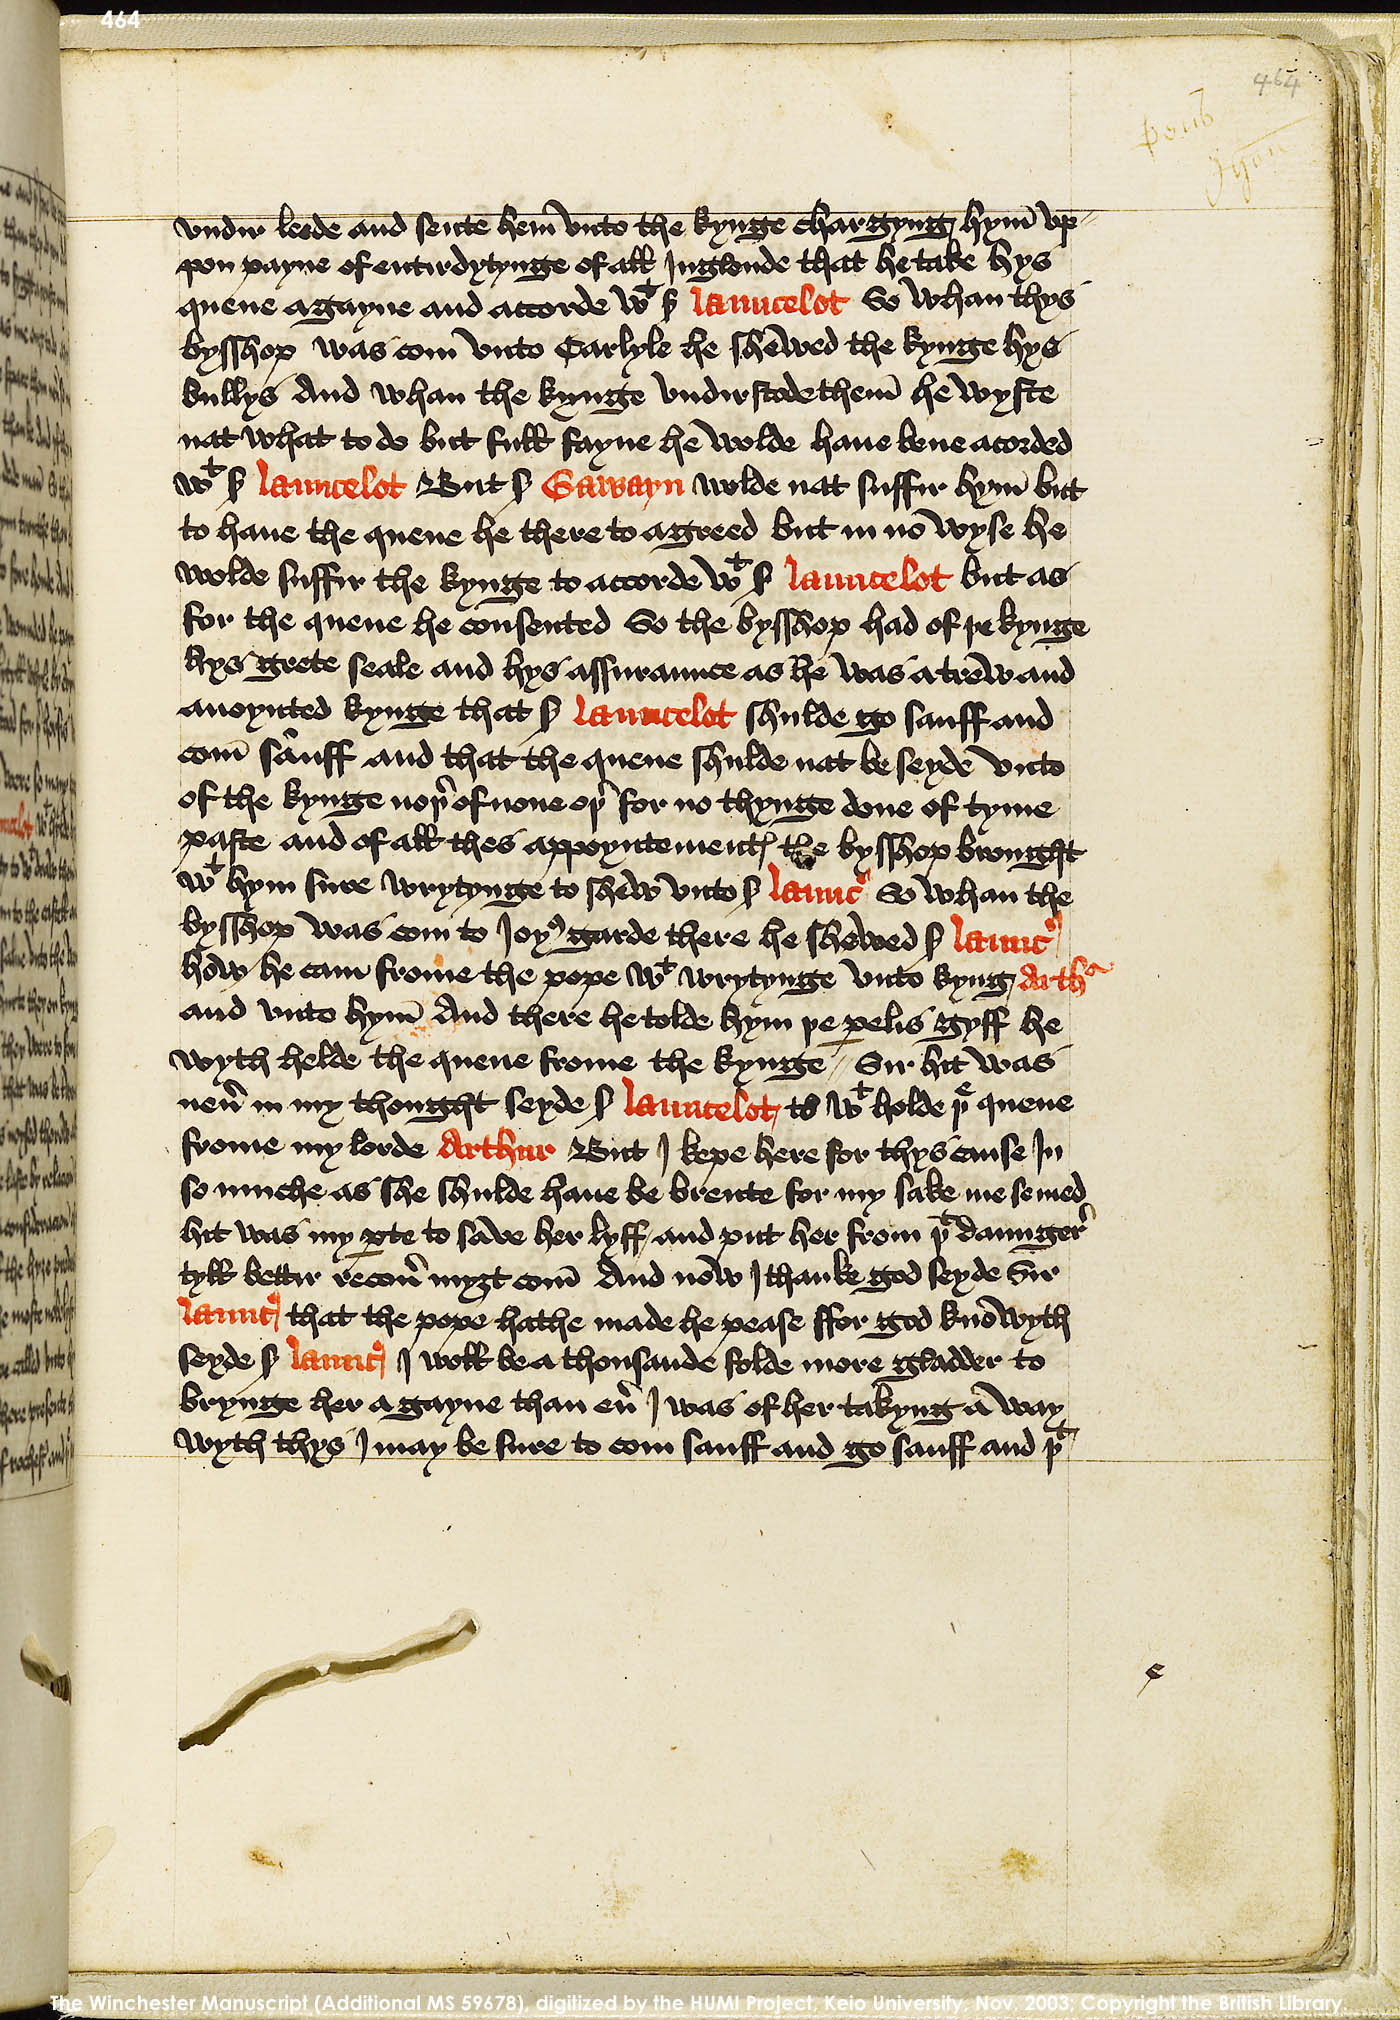 464
464
vndir leede and sente hem̄ vnto the kynge chargyng hym̄ vp
pon payne of entirdytynge of all Inglonde that he take hys
quene agayne and accorde wt s̄ launcelot So whan thys
bysshop was com̄ vnto Carlyle he shewed the kynge hys
bullys And whan the kynge vndirstode them̄ he wyste
nat what to do but full fayne he wolde haue bene acorded
wt s̄ launcelot But s̄ Gawayn wolde nat suffir hym̄ but
to haue the quene he there to agreed but in no wyse he
wolde suffir the kynge to accorde wt s̄ launcelot but as
for the quene he consented So the bysshop had of þe kynge
hys grete seale and hys assuraunce as he was a trew and
anoynted kynge that s̄ launcelot shulde go sauff and
com̄ sauff and that the quene shulde nat be seyde vnto
of the kynge noþr of none oþr for no thynge done of tyme
paste and of all thes appoyntementꝭ the bysshop brought
wt hym sure wrytynge to shew vnto s̄ launcꝰ So whan the
bysshop was com to Joyꝰ garde there he shewed s̄ launcꝰ
how he cam frome the pope wt wrytynge vnto kyng Arthr
and vnto hym̄ And there he tolde hym þe ꝑelis gyff he
wyth helde the quene frome the kynge // Sir hit was
neuͬ in my thought seyde s̄ launcelot to wt holde þe quene
frome my lorde Arthur But I kepe here for thys cause In
so muche as she shulde haue be brente for my sake me semed
hit was my ꝑte to save her lyff and put her from þt daunger
tyll bettir recouͬ myȝt com̄ And now I thanke god seyde Sir
launcꝰ that the pope hathe made he pease ffor god knowyth
seyde s̄ launcꝰ I woll be a thousande folde more gladder to
brynge her agayne than euͬ I was of her takyng a way
wyth thys I may be sure to com sauff and go sauff and þt
The Winchester Manuscript (Additional MS 59678), digitized by the HUMI Project, Keio University, Nov. 2003; Copyright the British Library.